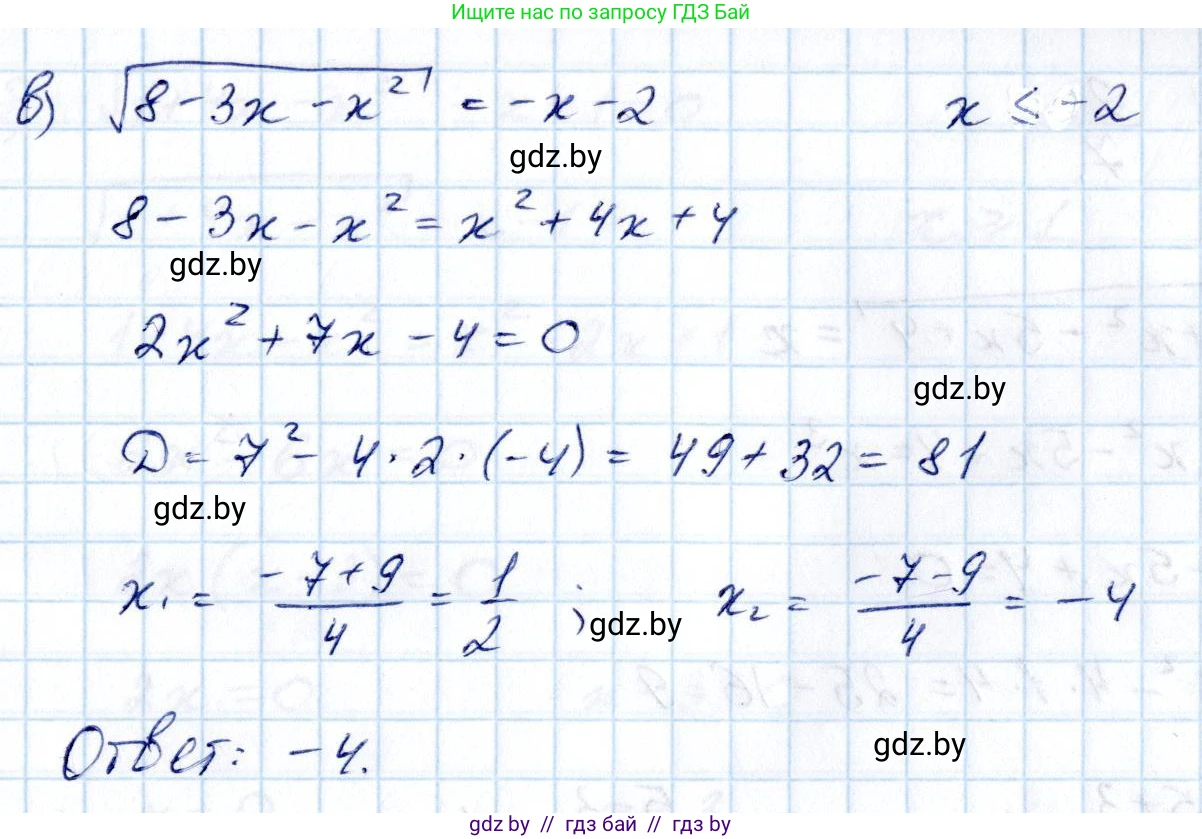 Ищите нас по запросу ГДЗ Бай
в) √(8 - 3x - x²) = -x - 2 x ≤ -2
gdz.by
8 - 3x - x² = x² + 4x + 4
gdz.by
2x² + 7x - 4 = 0
gdz.by
D = 7² - 4 · 2 · (-4) = 49 + 32 = 81
gdz.by
x₁ = (-7+9)/4 = 1/2 ; gdz.by x₂ = (-7-9)/4 = -4
Ответ: -4.
gdz.by
gdz.by // гдз бай // гдз by